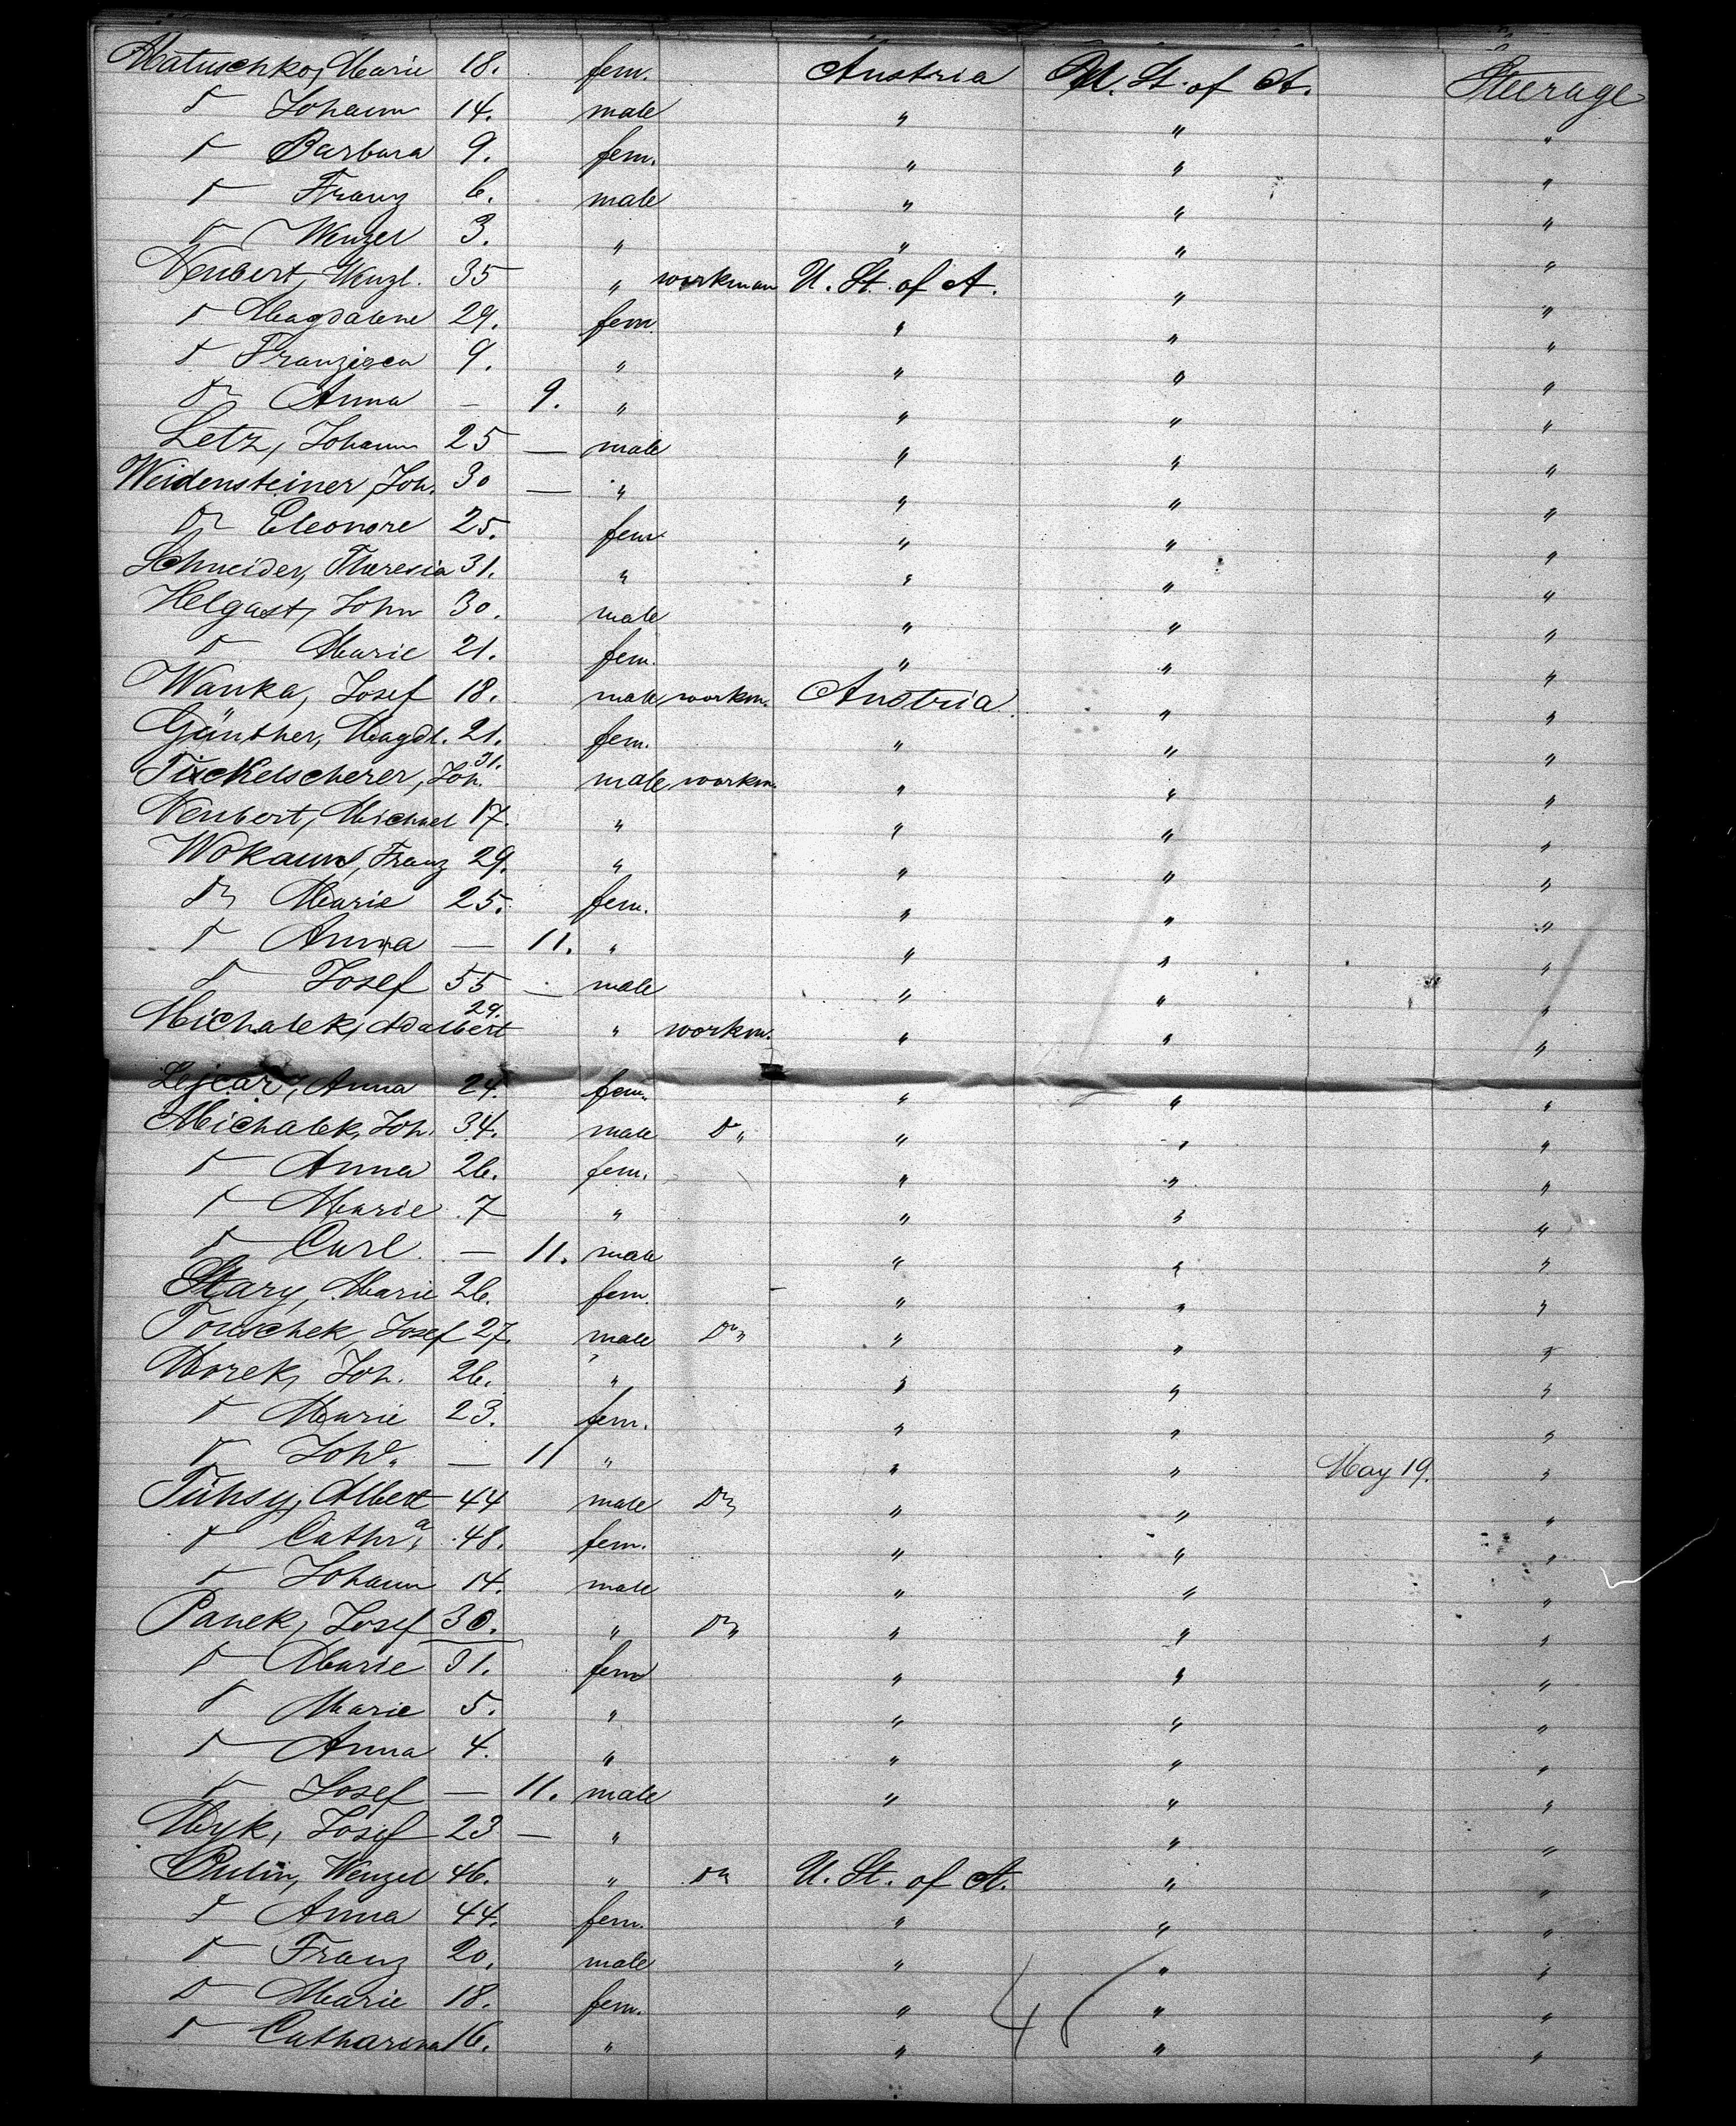 Matuschko, Marie 18. fem. Austria U. St. of A. Steerage
do Johann 14. male " " "
do Barbara 9. fem. " " "
do Franz 6. male " " "
do Wenzel 3. " " " "
Neubert, Wenzl. 35 " workman U. St. of A. " "
do Magdalene 29. fem. " " "
do Franzisca 9. " " " "
do Anna — 9. " " " "
Letz, Johann 25 — male " " "
Weidensteiner, Joh. 30 — " " " "
do Eleonore 25. fem. " " "
Schneider, Theresia 31. " " " "
Helgast, John 30. male " " "
do Marie 21. fem. " " "
Wanka, Josef 18. male workm. Austria " "
Günther, Magdl. 21. fem. " " "
Tuckelscherer, Joh. 31. male workm. " " "
Neubert, Michael 17. " " " "
Wokaun, Franz 29. " " " "
do Marie 25. fem. " " "
do Anna — 11. " " " "
do Josef 55 — male " " "
Michalek, Adalbert 29. " workm. " " "
Lejcar, Anna 24. fem. " " "
Michalek, Joh. 34. male do " " "
do Anna 26. fem. " " "
do Marie 7 " " " "
do Carl — 11. male " " "
Stary, Marie 26. fem. " " "
Touschek, Josef 27. male do " " "
Morek, Joh. 26. " " " "
do Marie 23. fem. " " "
do Joh<sup>a</sup>. — 11 " " " May 19. "
Tühsy, Albert 44 male do " " "
do Cathra 48. fem. " " "
do Johann 14. male " " "
Panek, Josef 30. " do " " "
do Marie 31. fem " " "
do Marie 5. " " " "
do Anna 4. " " " "
do Josef — 11. male " " "
Myk, Josef 23 — " " "
Pulin, Wenzel 46. " do U. St. of A. " "
do Anna 44. fem. " " "
do Franz 20. male " " "
do Marie 18. fem. " " "
do Catharina 16. " " " "